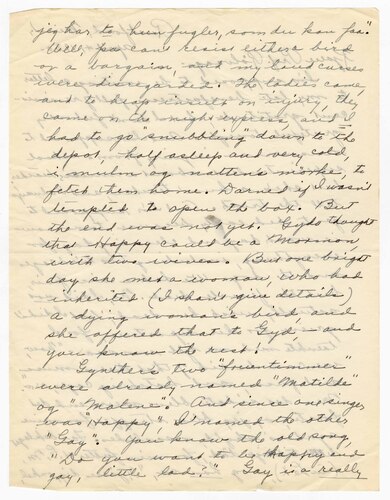 jeg har to hun fugler, som du kan faa."
Well, pa can't resist either a bird
or a bargain, and my loud curses
were disregarded. The ladies came,
and to heap insults on injury, they
came on the night express, and I
had to go "snubbling" down to the
depot, half asleep and very cold,
i mulm og nattens mörke, to
fetch them home. Darned if I wasn't
tempted to open the box. But
the end was not yet. Gyda thought
that Happy could be a Mormon
with two wives. But one bright
day she met a woman, who had
inherited (I shan't give details)
a dying woman's bird and
she offered that to Gyd, and
you know the rest!
Gynther's two "fruentimmer"
were already named "Matilde"
og "Malene". And since one singer
was "Happy" I named the other
"Gay". You know the old song,
"Do you want to be happy and
gay, little lad?" Gay is a really